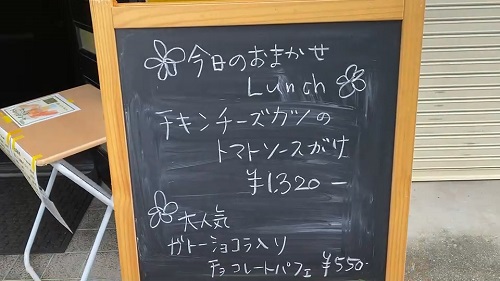 今日のおまかせ
Lunch
チキンチーズカツの
トマトソースがけ
¥1,320-
大人気
ガトーショコラ入り
チョコレートパフェ ¥550-